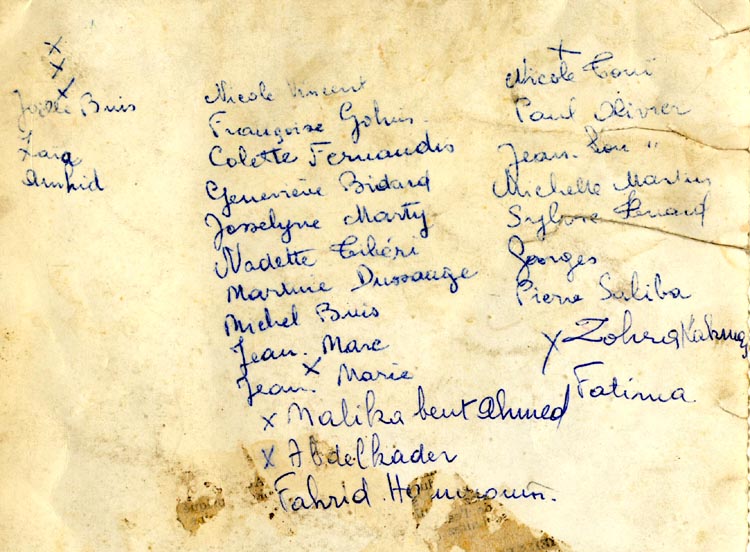 x
x
x
Joëlle Buis
Zara
Nicole Vincent
Françoise Gohis.
Colette Fernandis
Geneviève Bidard
Josselyne Marty
Nadette Tibéri
Martine Dussauge
Michel Buis
Jean. Marc
x
Jean. Marie
x Malika bent Ahmed
x Abdelkader
Fahrid
x
Nicole
Paul Olivier
Jean. Lou "
Michelle Martin
Georges
Pierre Saliba
x Zohra
Fatima.